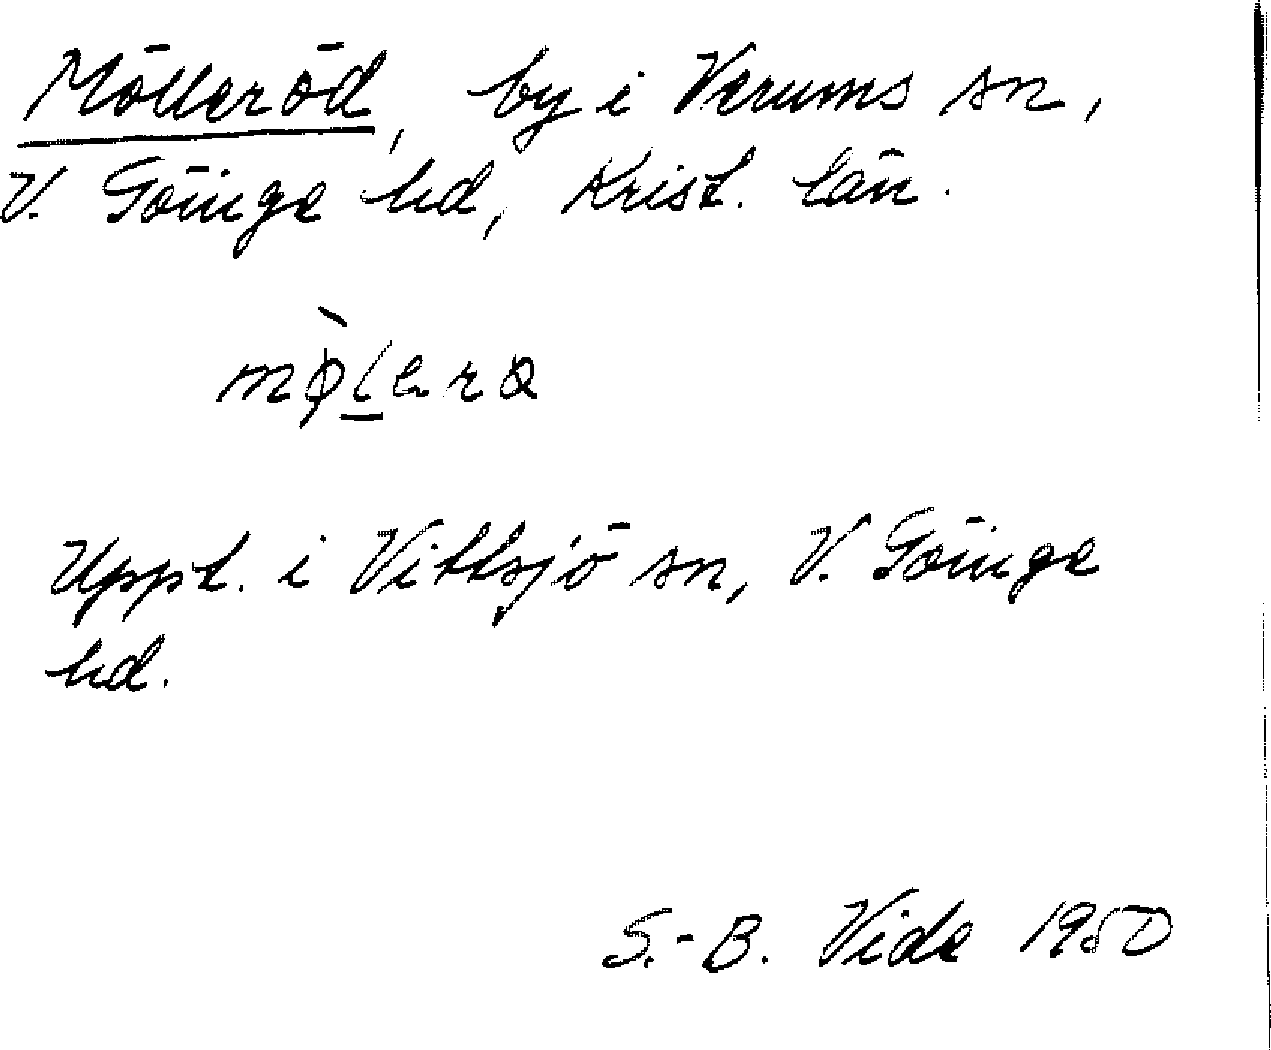 Mölleröd, by i Verums sn,
V. Göinge hd, Krist. län.
mø̀lera
Uppt. i Vittsjö sn, V. Göinge
hd.
S.-B. Vide 1950